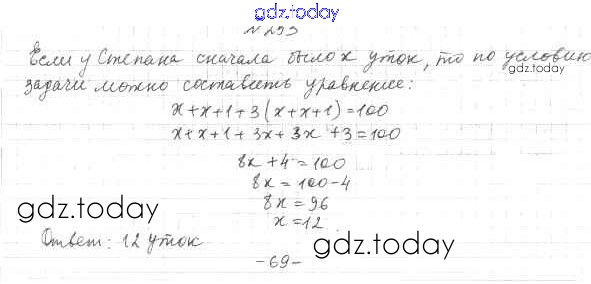 gdz.today
№ 293
Если у Степана сначала было x уток, то по условию
gdz.today
задачи можно составить уравнение:
x+x+1+3(x+x+1)=100
x+x+1+3x+3x+3=100
8x+4=100
8x=100-4
gdz.today
8x=96
x=12
Ответ: 12 уток
gdz.today
-69-